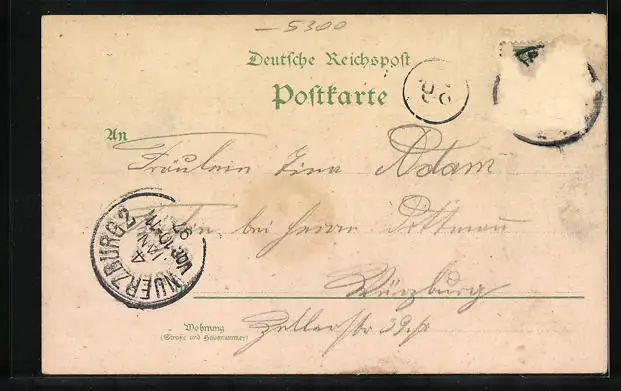 5300
Deutsche Reichspost
Postkarte
An
Fräulein Tina Adam
bei Herrn Dittmau
Würzburg
Zellerstr 39
Wohnung
(Straße und Hausnummer)
WUERZBURG 2
4
JAN
97
VOR. 10-11